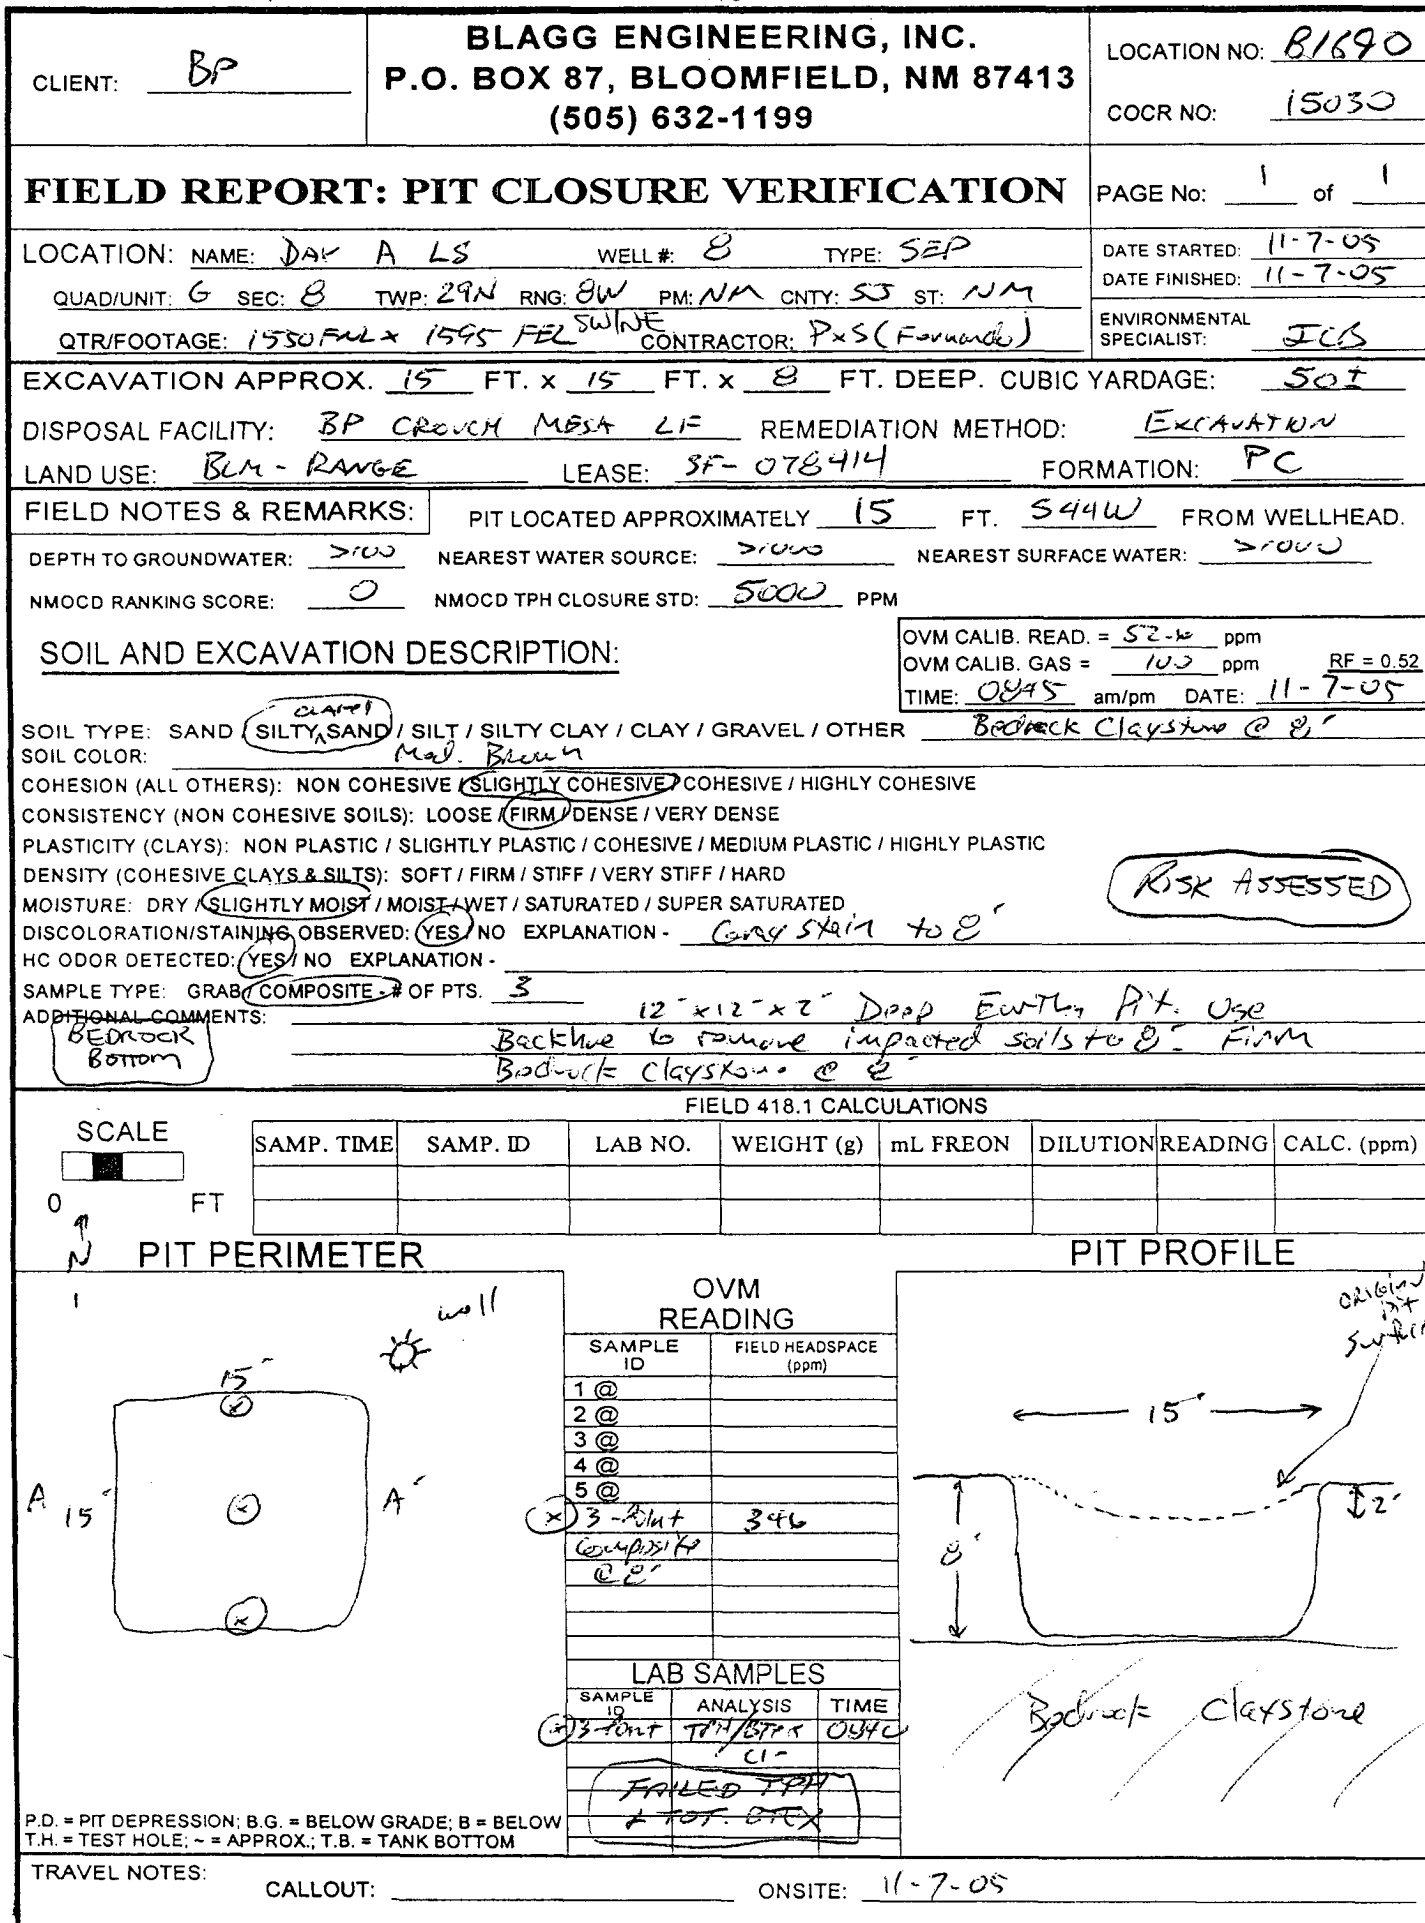 CLIENT: BP
BLAGG ENGINEERING, INC.
P.O. BOX 87, BLOOMFIELD, NM 87413
(505) 632-1199
LOCATION NO: B1690
COCR NO: 15030
FIELD REPORT: PIT CLOSURE VERIFICATION
PAGE No: 1 of 1
LOCATION: NAME: DAY A LS WELL #: 8 TYPE: SEP
QUAD/UNIT: G SEC: 8 TWP: 29N RNG: 8W PM: NM CNTY: SJ ST: NM
QTR/FOOTAGE: 1550 FNL x 1595 FEL SW/NE CONTRACTOR: P&S (Fernando)
DATE STARTED: 11-7-05
DATE FINISHED: 11-7-05
ENVIRONMENTAL
SPECIALIST: JCB
EXCAVATION APPROX. 15 FT. x 15 FT. x 8 FT. DEEP. CUBIC YARDAGE: 50±
DISPOSAL FACILITY: BP CROUCH MESA LF REMEDIATION METHOD: EXCAVATION
LAND USE: BLM - RANGE LEASE: SF- 078414 FORMATION: PC
FIELD NOTES & REMARKS: PIT LOCATED APPROXIMATELY 15 FT. S44W FROM WELLHEAD.
DEPTH TO GROUNDWATER: >100 NEAREST WATER SOURCE: >1000 NEAREST SURFACE WATER: >1000
NMOCD RANKING SCORE: 0 NMOCD TPH CLOSURE STD: 5000 PPM
SOIL AND EXCAVATION DESCRIPTION:
OVM CALIB. READ. = ppm
OVM CALIB. GAS = 100 ppm RF = 0.52
TIME: 0845 am/pm DATE: 11-7-05
CLAYEY
SOIL TYPE: SAND / SILTY SAND / SILT / SILTY CLAY / CLAY / GRAVEL / OTHER Bedrock Claystone @ 8'
SOIL COLOR: Med. Brown
COHESION (ALL OTHERS): NON COHESIVE / SLIGHTLY COHESIVE / COHESIVE / HIGHLY COHESIVE
CONSISTENCY (NON COHESIVE SOILS): LOOSE / FIRM / DENSE / VERY DENSE
PLASTICITY (CLAYS): NON PLASTIC / SLIGHTLY PLASTIC / COHESIVE / MEDIUM PLASTIC / HIGHLY PLASTIC
DENSITY (COHESIVE CLAYS & SILTS): SOFT / FIRM / STIFF / VERY STIFF / HARD
RISK ASSESSED
MOISTURE: DRY / SLIGHTLY MOIST / MOIST / WET / SATURATED / SUPER SATURATED
DISCOLORATION/STAINING OBSERVED: YES / NO EXPLANATION - Gray Stain to 8'
HC ODOR DETECTED: YES / NO EXPLANATION -
SAMPLE TYPE: GRAB / COMPOSITE - # OF PTS. 3
ADDITIONAL COMMENTS: 12' x 12' x 2' Deep Earthen Pit. Use
Backhoe to remove impacted soils to 8'. Firm
Bedrock Claystone @ 8'
BEDROCK
BOTTOM
FIELD 418.1 CALCULATIONS
SCALE
0 FT
SAMP. TIME SAMP. ID LAB NO. WEIGHT (g) mL FREON DILUTION READING CALC. (ppm)
N
PIT PERIMETER
PIT PROFILE
well
15'
A 15' A'
OVM
READING
SAMPLE ID FIELD HEADSPACE (ppm)
1 @
2 @
3 @
4 @
5 @
3-Point 346
Composite
@ 8'
LAB SAMPLES
SAMPLE ID ANALYSIS TIME
3-Point TPH/BTEX 0840
Cl-
FAILED TPH
& TOT. BTEX
ORIGINAL
PIT
Surface
15'
2'
8'
Bedrock Claystone
P.D. = PIT DEPRESSION; B.G. = BELOW GRADE; B = BELOW
T.H. = TEST HOLE; ~ = APPROX.; T.B. = TANK BOTTOM
TRAVEL NOTES: CALLOUT: ONSITE: 11-7-05